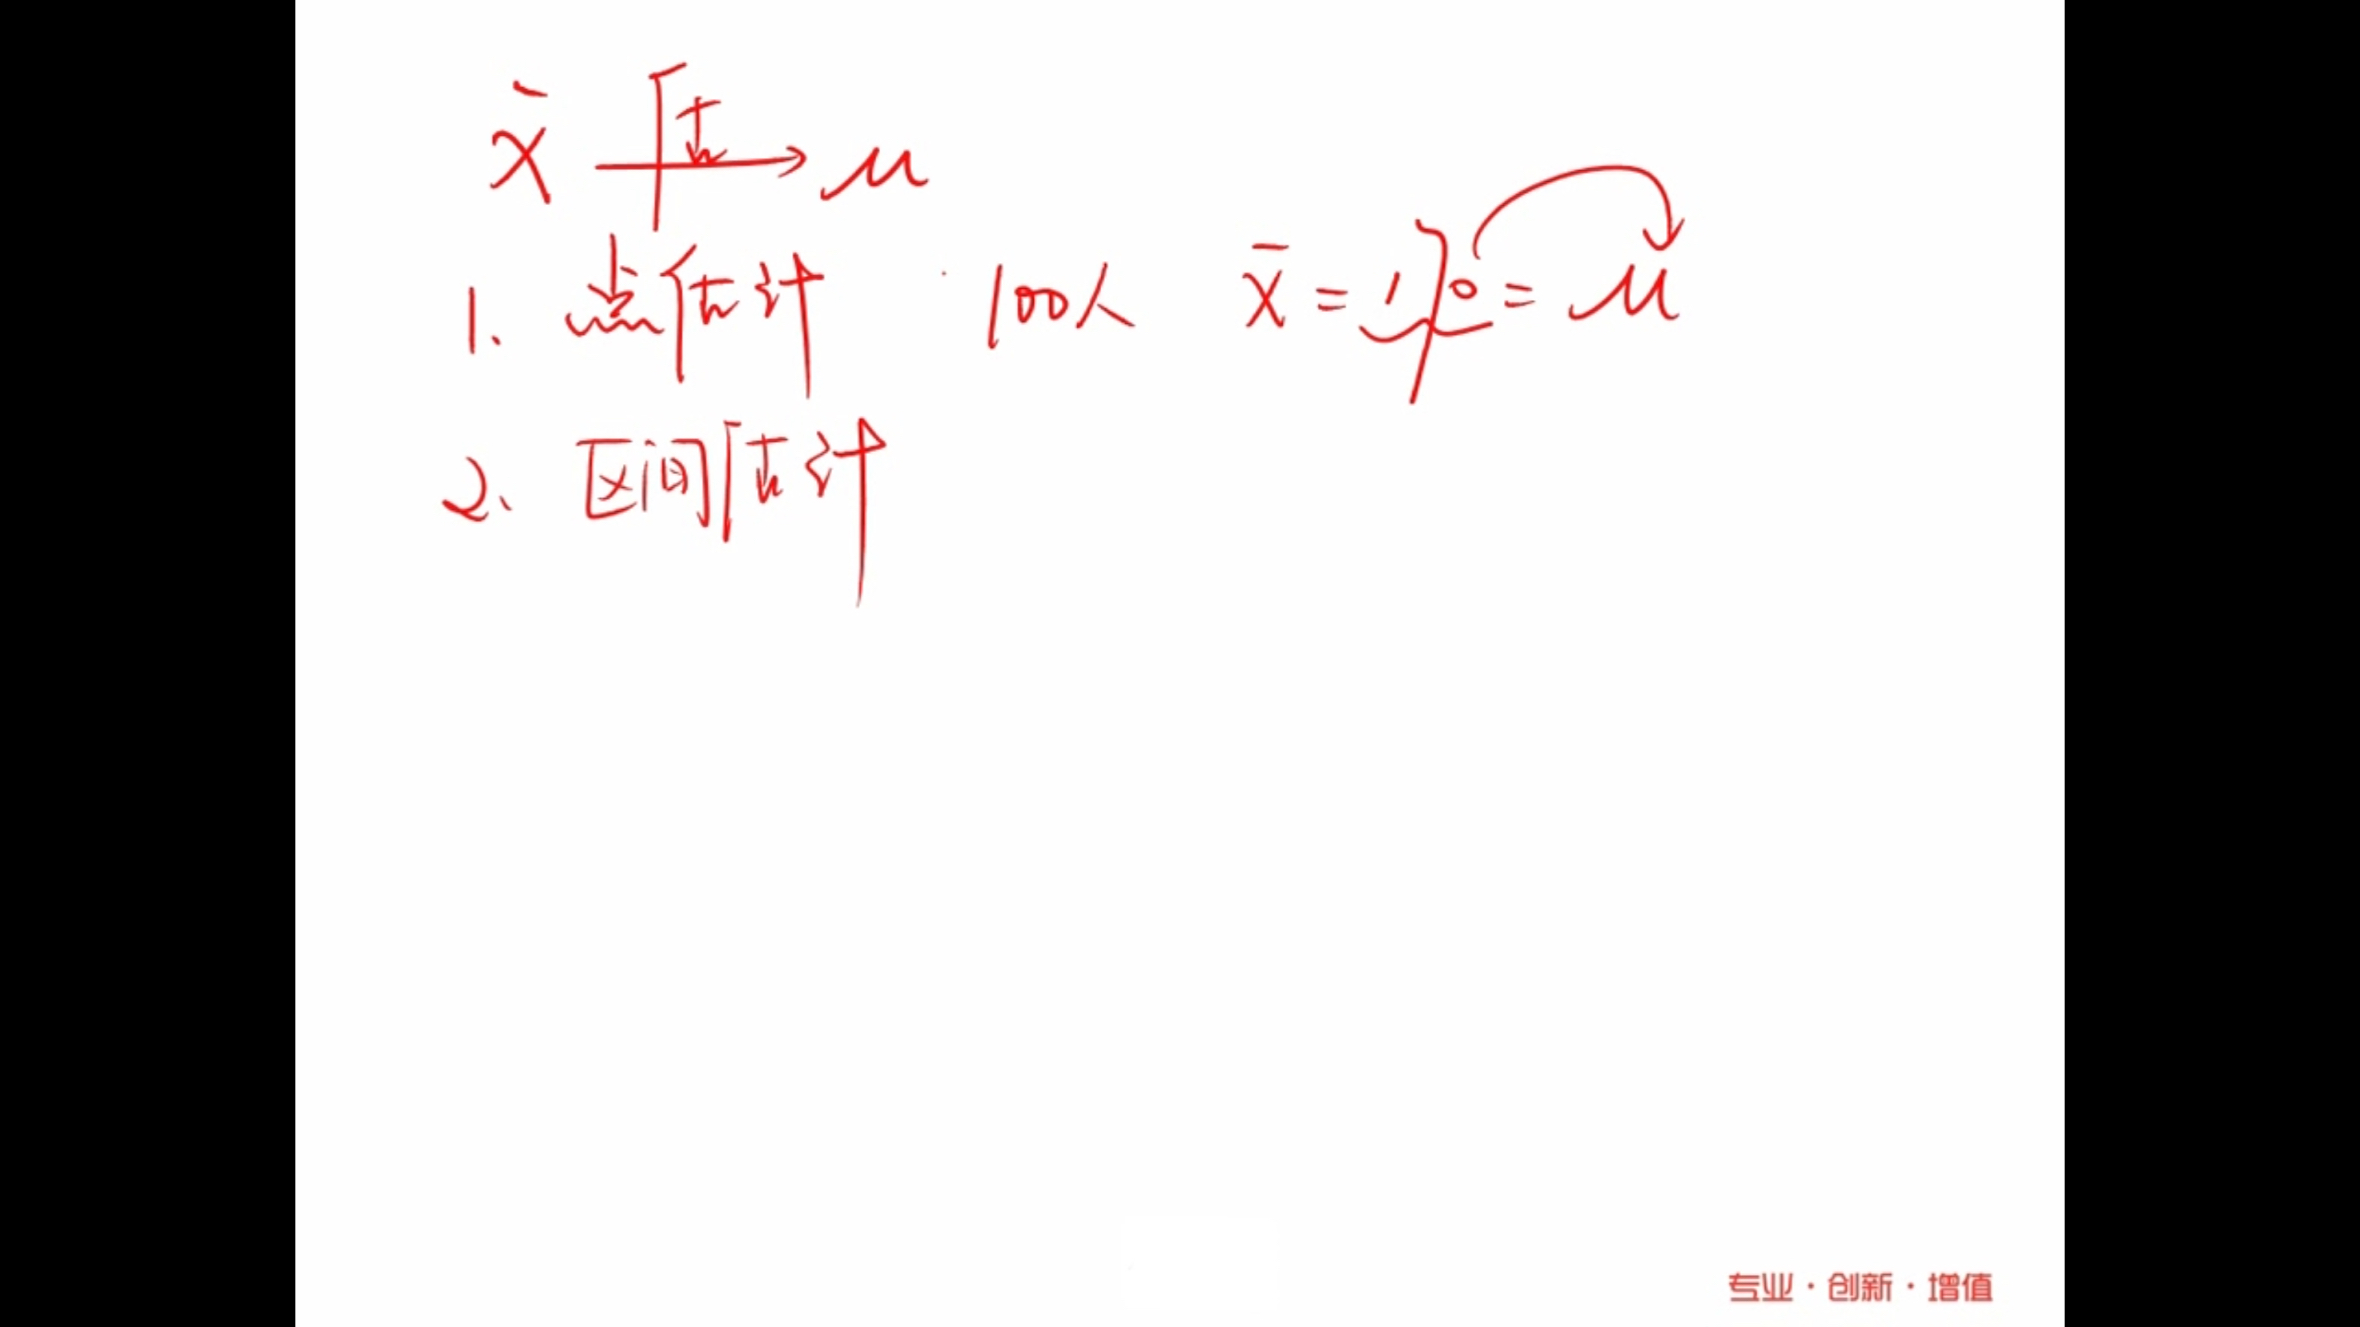 x̄ 估→ μ
1、点估计 100人 x̄ = 170 = μ
2、区间估计
专业·创新·增值